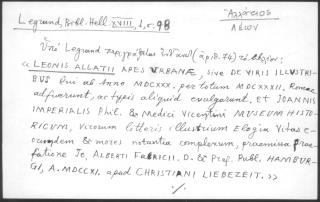 Legrand, Bibl. Hell. XVIII, 1, σ. 98
Ἀλλάτιος
Λέων
Ὑπὸ Legrand περιγράφεται ( ἀρ. 74) τὸ ἑξῆς:
« LEONIS ALLATII APES URBANAE, sive DE VIRIS ILLUSTRI-
BUS qui ab Anno MDCXXX. per totum MDCXXXII. Romae
adfuerunt, ac typis aliquid evulgarunt, ET JOANNIS
IMPERIALIS Phil. & Medici Vicentini MUSEUM HISTO-
RICUM, virorum litteris illustrium Elogia Vitas e-
orundem & mores notantia complexum, praemissa Prae-
fatione Jo. ALBERTI FABRICII. D. & Prof. Publ. HAMBUR-
GI, A. MDCCXI. apud CHRISTIANI LIEBEZEIT. »
·/.